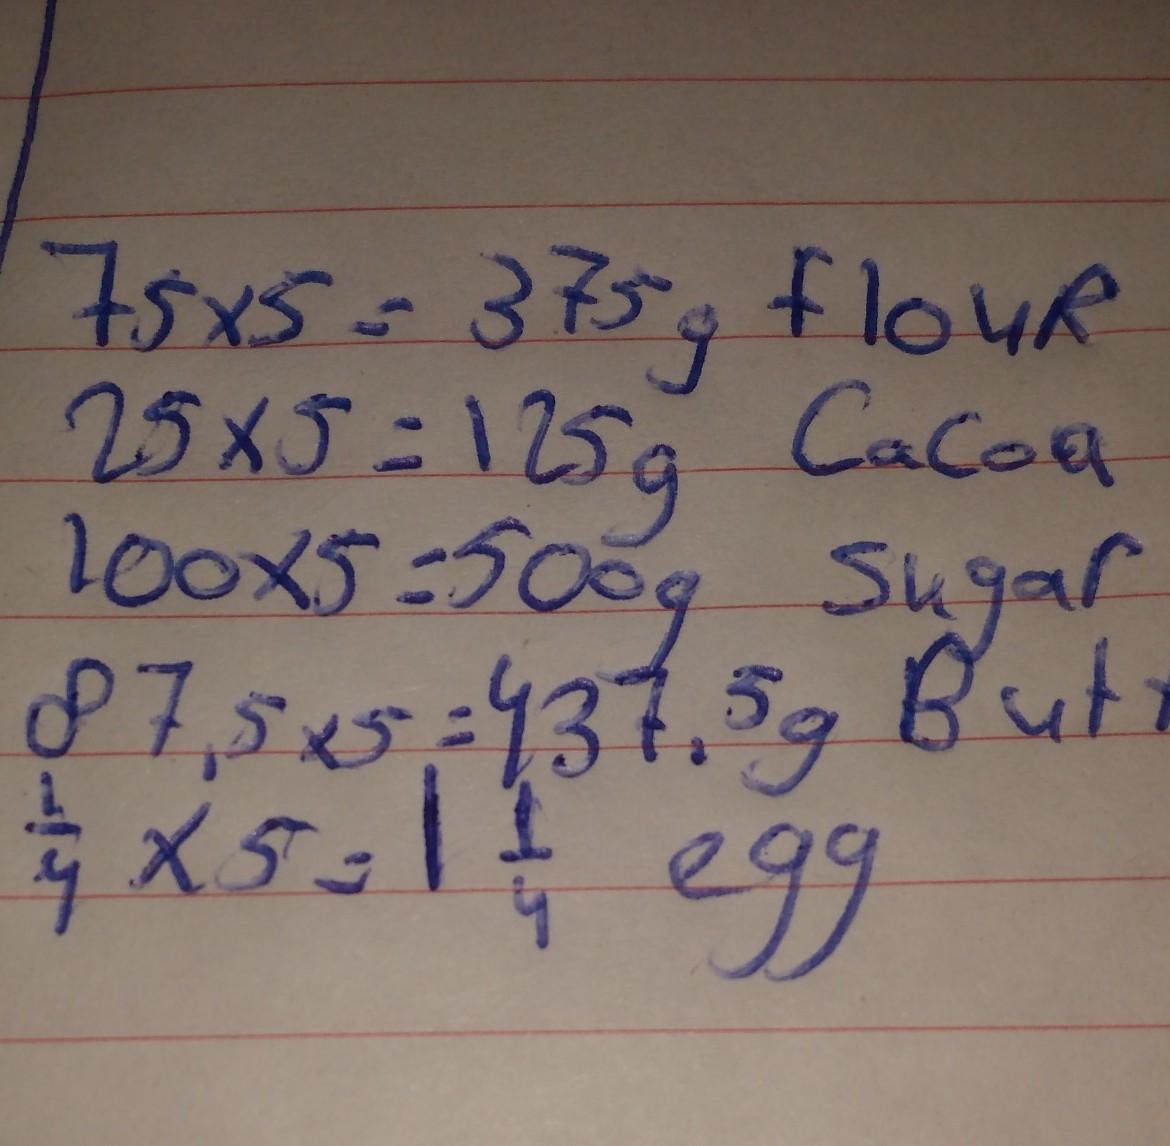 75x5 = 375g flouR
25x5 = 125g Cacoa
100x5 = 500g Sugar
87,5x5 = 437.5g Butt
1/4 x 5 = 1 1/4 egg